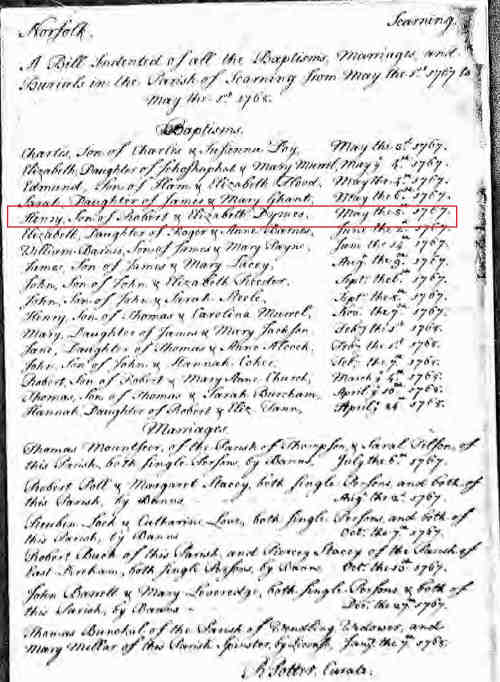 Norfolk. Scarning.
A Bill Indented of all the Baptisms, Marriages, and
Burials in the Parish of Scarning from May the 1st 1767 to
May the 1st 1768.
Baptisms.
Charles, Son of Charles & Susanna May the 3d 1767.
Elizabeth, Daughter of Jehoshaphat & Mary Murrel, May ye 1767.
Edmund, Son of Ham & Elizabeth Flood. May the 1767.
Sarah, Daughter of James & Mary Ghant. May the 6th 1767.
Henry, Son of Robert & Elizabeth Dymes. May the 1767.
Elizabeth, Daughter of Roger & Anne Barnes. June the 2d 1767.
William Barns, Son of James & Mary Payne. June the 14th 1767.
James, Son of James & Mary Lacey. Augt the 9th 1767.
John, Son of John & Elizabeth Sept. the 6th 1767.
John, Son of John & Sarah Steele. Sept. the 1767.
Henry, Son of Thomas & Carolina Murrel. Nov. the 1767.
Mary, Daughter of James & Mary Jackson. Feby the 1st 1768.
Jane, Daughter of Thomas & Anne Alcock. Feby the 1st 1768.
John, Son of John & Hannah Coker. Feby the 7th 1768.
Robert, Son of Robert & Mary Anne Church. March ye 1768.
Thomas, Son of Thomas & Sarah Burcham. April ye 10th 1768.
Hannah, Daughter of Robert & Eliz. April ye 24th 1768.
Marriages
Thomas Mountseer, of the Parish of Thompson, & Sarah of
this Parish, both single Persons, by Banns. July the 6th 1767.
Robert Poll & Margaret Stacey, both single Persons, and both of
this Parish, by Banns Augt the 2d 1767.
Reuben & Catharine Love, both single Persons, and both of
this Parish, by Banns Oct. the 1767.
Robert Buck of this Parish, and Piercey Stacey of the Parish of
East Dereham, both single Persons, by Banns Oct. the 1767.
John Barrett & Mary Loveredge, both single Persons & both of
this Parish, by Banns - Dec. the 27th 1767.
Thomas of the Parish of Wendling Widower, and
Mary Mellar of this Parish Spinster, by Licence, Jany the 7th 1768.
R. Potter, Curate.